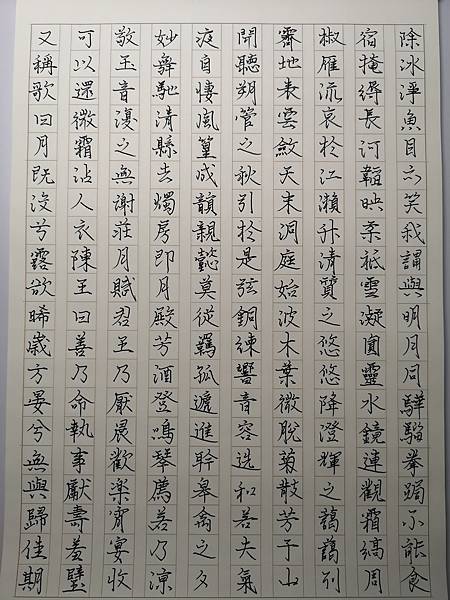 除冰淨魚目亦笑我謂與明月同驊騮拳跼不能食
宿掩縟長河韜映柔祇雪凝圓靈水鏡連觀霜縞周
椒雁流哀於江瀨升清質之悠悠降澄輝之藹藹列
霽地表雲斂天末洞庭始波木葉微脫菊散芳于山
開聽朔管之秋引於是弦銅練響音容选和若夫氣
疫自悽風篁成韻親懿莫從羈孤遞進聆皋禽之夕
妙舞馳清縣去燭房即月殿芳酒登鳴琴薦若乃涼
敬玉音復之無謝莊月賦君王乃厭晨歡樂宵宴收
可以還微霜沾人衣陳王曰善乃命執事獻壽羞璧
又稱歌曰月既沒兮露欲晞歲方晏兮無與歸佳期